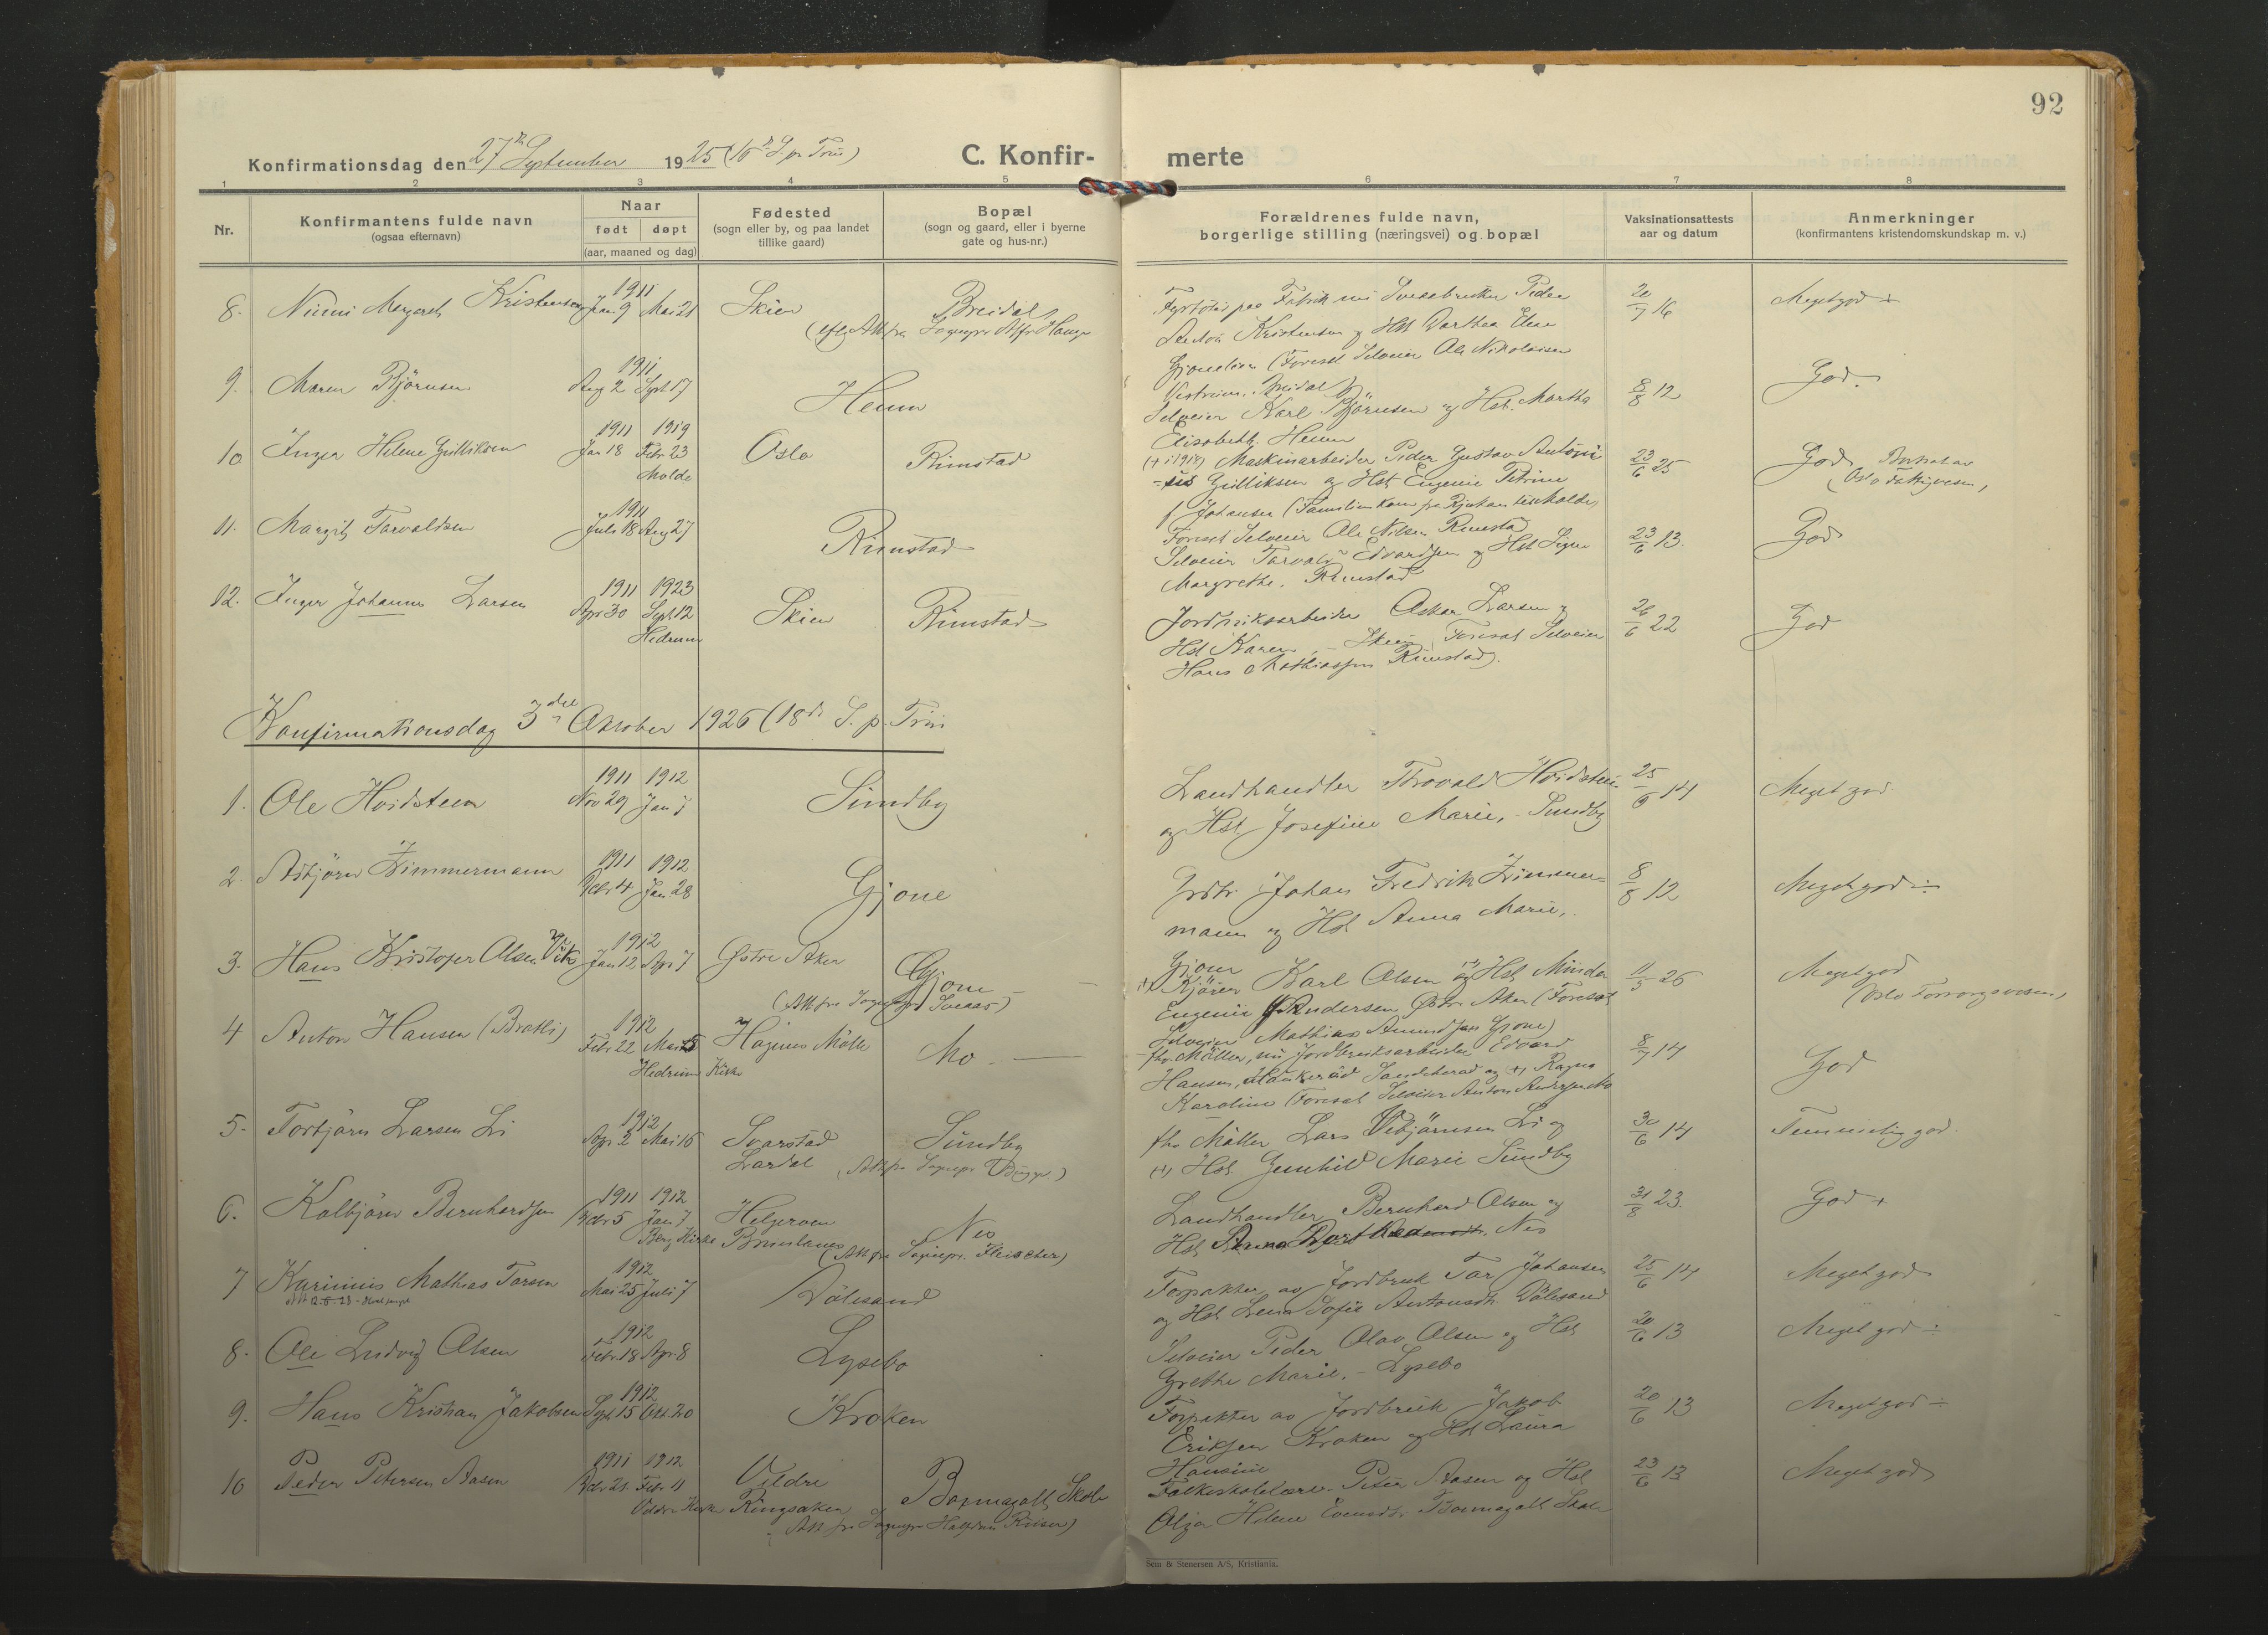 92
Konfirmationsdag den 27de September 1925 (16de S. p. Trin)
C. Konfirmerte
1 2 3 4 5 6 7 8
Nr.
Konfirmantens fulde navn
(ogsaa efternavn)
Naar
født døpt
(aar, maaned og dag)
Fødested
(sogn eller by, og paa landet
tillike gaard)
Bopæl
(sogn og gaard, eller i byerne
gate og hus-nr.)
Forældrenes fulde navn,
borgerlige stilling (næringsvei) og bopæl
Vaksinationsattests
aar og datum
Anmerkninger
(konfirmantens kristendomskundskap m. v.)
8. Margareth Kristensen 1911 Jan 9 Mai 21 Skien Breidal
Fyrbøter paa Fabrik nu Peder
Anton Kristensen og Hst Dorthea
(Foresat Selveier Ole Nikolaisen
20/7 16 Meget god +
9. Maren Bjørnsen 1911 Aug 2 Sept 17 Hem
Selveier Karl Bjørnsen og Hst. Martha
Elisabeth. Hem
8/8 12 God.
10 Inger Helene Gulliksen 1911 Jan 18 1919 Febr 23 Molde Oslo Rimstad
(+ i 1918) Maskinarbeider Peder Gustav
Gulliksen og Hst Eugenie Petrine
f. Johansen (Familien kom fra Rjukan til Molde)
Foresat Selveier Ole Nilsen Rimstad
23/6 25 God
11. Margit Torvaldsen 1911 Juli 18 Aug 27 Rimstad
Selveier Torvald Edvardsen og Hst Signe
Margrethe. Rimstad
23/6 13. God
12. Inger Johanne Larsen 1911 Apr 30 1923 Sept 12 Hedrum Skien Rimstad
Jordbruksarbeider Oskar Larsen og
Hst Karen, – Skien Foresat Selveier
Hans Mathiassen Rimstad).
26/6 22 God
Konfirmationsdag 3die Oktober 1926 (18de S. p. Trin
1. Ole Hvidsteen 1911 Nov 29 1912 Jan 7 Sundby
Landhandler Thorvald Hvidsteen
og Hst Josefine Marie, – Sundby
25/6 14 Meget god
2. Asbjørn Zimmermann 1911 Dcbr 4 1912 Jan 28 Gjone
Grdbr. Johan Fredrik Zimmer=
mann og Hst Anna Marie,
Gjone
8/8 12 Meget god ÷
3. Hans Kristofer Olsen Vik 1912 Jan 12 Apr 7 Østre Aker Gjone
(Att fra Sognepr Svaas)
(+) Kjører Karl Olsen og (+) Hst Minda
Eugenie Andersen Østre Aker (Foresat
Selveier Mathias Amundsen Gjone)
11/5 26 Meget god
4 Anton Hansen (Bratli) 1912 Febr 22 Mai 5 Hedrum Kirke Mølle Mo –
fhv. Møller, nu Jordbruksarbeider Edvard
Hansen, Sandeherad og (+) Ragna
Karoline (Foresat Selveier Anton Andersen Mo
8/7 14 God
5. Torbjørn Larsen Li 1912 Apr 2 Mai 16 Svarstad
Lardal Sundby
(Att fra Sognepr Bugge)
fhv Møller Lars Vebjørnsen Li og
(+) Hst. Gunhild Marie Sundby
30/6 14 Temmelig god
6. Kolbjørn Bernhardsen 1911 Dcbr 5 1912 Jan 7 Berg Kirke Helgeroen
Brunlanes Nes
(Att fra Sognepr. Fleischer)
Landhandler Bernhard Olsen og
Hst Nes
31/8 23. God +
7 Karinius Mathias Torsen 1912 Mai 25 Juli 7 Dølesand
Forpakter av Jordbruk Tor Johansen
og Hst Lena Sofie Antonsdtr. Dølesand
25/6 14 Meget god
8. Ole Ludvig Olsen 1912 Febr 18 Apr 8 Lysebo
Selveier Peder Olav Olsen og Hst
Grethe Marie. – Lysebo
20/6 13 Meget god ÷
9. Hans Kristian Jakobsen 1912 Sept 15 Okt. 20 Kroken
Forpakter av Jordbruk Jakob
Eriksen Kroken og Hst Laura
Hansine
20/6 13 Meget god ÷
10 Peder Petersen Aasen 1911 Dcbr 21 1912 Febr 11 Veldre Kirke Veldre
Ringsaker Skole
(Att fra Sognepr Halfdan Riiser)
Folkeskolelærer Peter Aasen og Hst
Olga Helene Evensdtr. Skole
23/6 13 Meget god
Sem & Stenersen A/S, Kristiania.